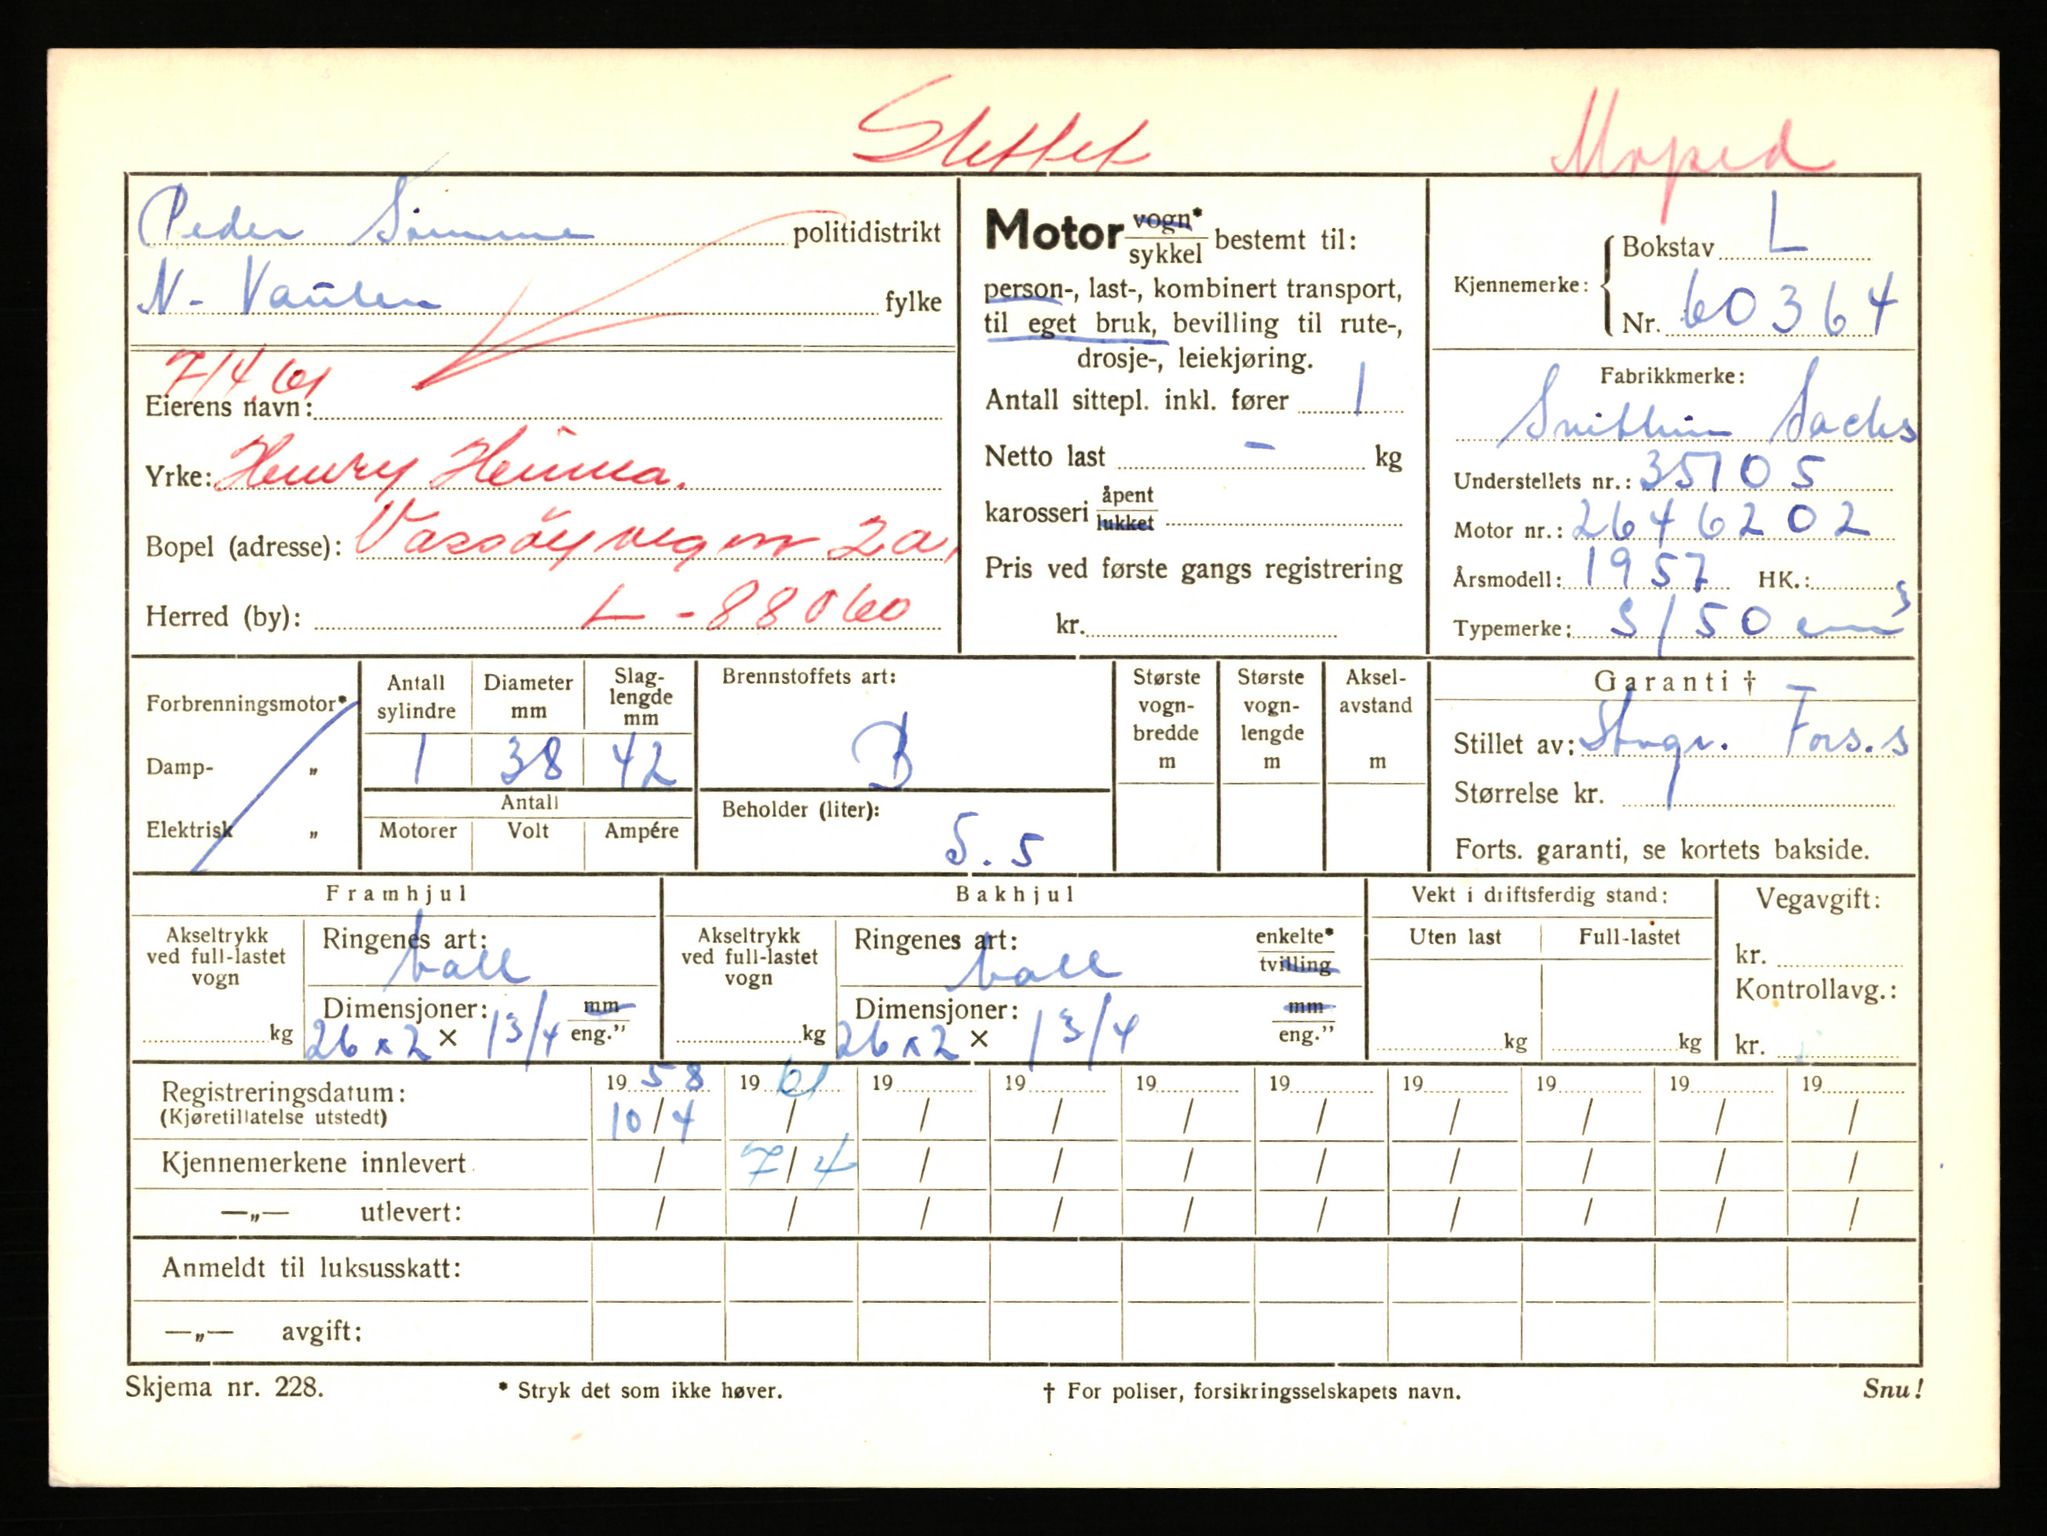 Slettet
Moped
Peder Sømme politidistrikt
N- Vaulen fylke
7/4.61
Eierens navn:
Yrke: Henry Heimea.
Bopel (adresse): Vassøyvegen 2a,
Herred (by): L - 88060
Motor vogn* / sykkel bestemt til:
person-, last-, kombinert transport,
til eget bruk, bevilling til rute-,
drosje-, leiekjøring.
Antall sittepl. inkl. fører 1
Netto last - kg
karosseri åpent / lukket
Pris ved første gangs registrering
kr.
Kjennemerke: Bokstav L
Nr. 60364
Fabrikkmerke:
Sachs
Understellets nr.: 35105
Motor nr.: 2646202
Årsmodell: 1957 HK.:
Typemerke: S/50 cm³
Forbrenningsmotor*
Damp- „
Elektrisk „
Antall sylindre 1
Diameter mm 38
Slag-lengde mm 42
Antall
Motorer Volt Ampére
Brennstoffets art:
B
Beholder (liter):
5.5
Største vogn-bredde m
Største vogn-lengde m
Aksel-avstand m
Garanti †
Stillet av: Storg. Fors.s
Størrelse kr.
Forts. garanti, se kortets bakside.
Framhjul
Akseltrykk ved full-lastet vogn
kg
Ringenes art:
ball
Dimensjoner: mm
26 x 2 × 1 3/4 eng."
Bakhjul
Akseltrykk ved full-lastet vogn
kg
Ringenes art: enkelte*
ball tvilling
Dimensjoner: mm
26 x 2 × 1 3/4 eng."
Vekt i driftsferdig stand:
Uten last Full-lastet
kg kg
Vegavgift:
kr.
Kontrollavg.:
kr.
Registreringsdatum: 19 58 19 61 19 19 19 19 19 19 19 19
(Kjøretillatelse utstedt) 10/4 / / / / / / / / /
Kjennemerkene innlevert / 7/4 / / / / / / / /
—„— utlevert: / / / / / / / / / /
Anmeldt til luksusskatt:
—„— avgift:
Skjema nr. 228.
* Stryk det som ikke høver.
† For poliser, forsikringsselskapets navn.
Snu!